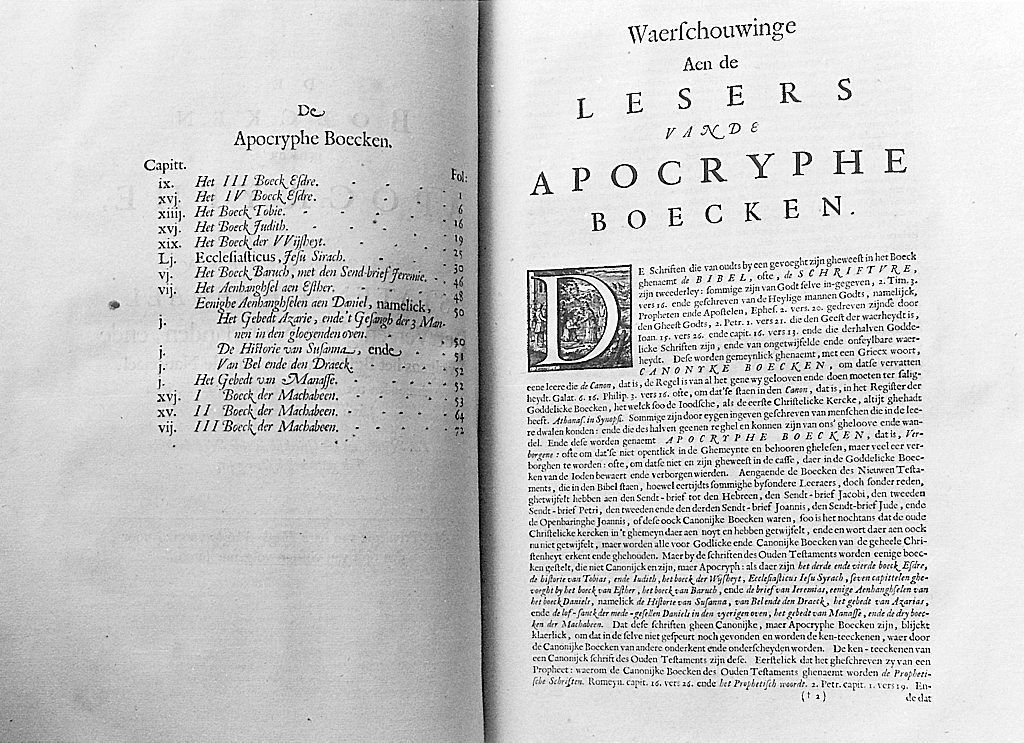 De
Apocryphe Boecken.
Capitt.
Fol:
ix. Het III Boeck Esdre. 1
xvj. Het IV Boeck Esdre. 6
xiiij. Het Boeck Tobie. 16
xvj. Het Boeck Judith. 19
xix. Het Boeck der VVijsheyt. 25
Lj. Ecclesiasticus, Jesu Sirach. 30
vj. Het Boeck Baruch, met den Send-brief Jeremie. 46
vij. Het Aenhanghsel aen Esther. 48
Eenighe Aenhanghselen aen Daniel, namelick, 50
j. Het Gebedt Azarie, ende't Gesangh der 3 Man-
nen in den gloeyenden oven. 50
j. De Historie van Susanna, ende 51
j. Van Bel ende den Draeck. 52
j. Het Gebedt van Manasse. 52
xvj. I Boeck der Machabeen. 53
xv. II Boeck der Machabeen. 64
vij. III Boeck der Machabeen. 72
Waerſchouwinge
Aen de
LESERS
VANDE
APOCRYPHE
BOECKEN.
DE Schriften die van oudts by een gevoeght zijn gheweeſt in het Boeck
ghenaemt de BIBEL, ofte, de SCHRIFTVRE,
zijn tweederley: ſommige zijn van Godt ſelve in-gegeven, 2 Tim. 3.
vers 16. ende geſchreven van de Heylige mannen Godts, namelijck,
Propheten ende Apoſtelen, Epheſ. 2. vers. 20. gedreven zijnde door
den Gheeſt Godts, 2. Petr. 1. vers 21. die den Geeſt der waerheydt is,
Ioan. 15. vers 26. ende capit. 16. vers 13. ende die derhalven Godde-
licke Schriften zijn, ende van ongetwijfelde ende onfeylbare waer-
heydt. Deſe worden gemeynlick ghenaemt, met een Griecx woort,
CANONYKE BOECKEN, om datſe vervatten
eene leere die de Canon, dat is, de Regel is van al het gene wy gelooven ende doen moeten ter ſalig-
heydt. Galat. 6. 16. Philip. 3. vers 16. ofte, om dat'ſe ſtaen in den Canon, dat is, in het Regiſter der
Goddelicke Boecken, het welck ſoo de Ioodſche, als de eerſte Chriſtelicke Kercke, altijt ghehadt
heeft. Athanaſ. in Synopſi. Sommige zijn door eygen ingeven geſchreven van menſchen die in de lee-
re dwalen konden: ende die des halven geenen reghel en konnen zijn van ons' gheloove ende wan-
del. Ende deſe worden genaemt APOCRYPHE BOECKEN, dat is, Ver-
borgene: ofte om dat'ſe niet opentlick in de Ghemeynte en behooren gheleſen, maer veel eer ver-
borghen te worden: ofte, om datſe niet en zijn gheweeſt in de caſſe, daer in de Goddelicke Boec-
ken van de Ioden bewaert ende verborgen wierden. Aengaende de Boecken des Nieuwen Teſta-
ments, die in den Bibel ſtaen, hoewel eertijdts ſommighe byſondere Leeraers, doch ſonder reden,
ghetwijfelt hebben aen den Sendt-brief tot den Hebreen, den Sendt-brief Jacobi, den tweeden
Sendt-brief Petri, den tweeden ende den derden Sendt-brief Joannis, den Sendt-brief Jude, ende
de Openbaringhe Joannis, of deſe oock Canonijke Boecken waren, ſoo is het nochtans dat de oude
Chriſtelicke kercken in't ghemeyn daer aen noyt en hebben getwijfelt, ende en wort daer aen oock
nu niet getwijfelt, maer worden alle voor Godlicke ende Canonijke Boecken van de geheele Chri-
ſtenheyt erkent ende ghehouden. Maer by de ſchriften des Ouden Teſtaments worden eenige boec-
ken geſtelt, die niet Canonijck en zijn, maer Apocryph: als daer zijn het derde ende vierde boeck Eſdre,
de hiſtorie van Tobias, ende Iudith, het boeck der Wyſheyt, Eccleſiaſticus Ieſu Syrach, ſeven capittelen ghe-
voeght by het boeck van Eſther, het boeck van Baruch, ende de brief van Ieremias, eenige Aenhanghſelen van
het boeck Daniels, namelick de Hiſtorie van Suſanna, van Bel ende den Draeck, het gebedt van Azarias,
ende de lof-ſanck der mede-geſellen Daniels in den vyerigen oven, het gebedt van Manaſſe, ende de dry boec-
ken der Machabeen. Dat deſe ſchriften gheen Canonijke, maer Apocryphe Boecken zijn, blijckt
klaerlick, om dat in de ſelve niet geſpeurt noch gevonden en worden de ken-teeckenen, waer door
de Canonijke Boecken van andere onderkent ende onderſcheyden worden. De ken-teeckenen van
een Canonijck ſchrift des Ouden Teſtaments zijn deſe. Eerſtelick dat het gheſchreven zy van een
Propheet: waerom de Canonijke Boecken des Ouden Teſtaments ghenaemt worden de Propheti-
ſche Schriften. Romeyn. capit. 16. vers 26. ende het Prophetiſch woordt. 2. Petr. capit. 1. vers 19. En-
(† 2) de dat